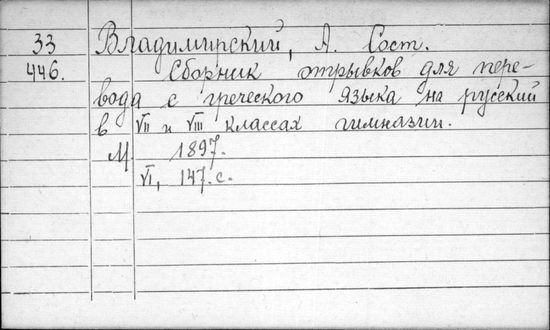 33 Владимирский, А. Сост.
446. Сборник отрывков для пере-
вода с греческого языка на русский
в VII и VIII классах гимназии.
М 1897.
VI, 147.с.